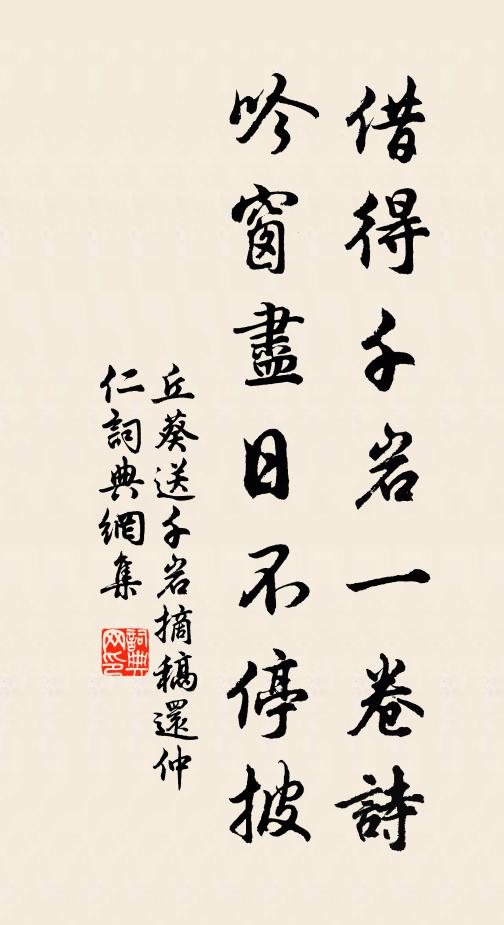 借得千岩一卷詩
吟窗盡日不停披
丘葵送千岩摘稿還仲
仁詞典網集
詞典网印